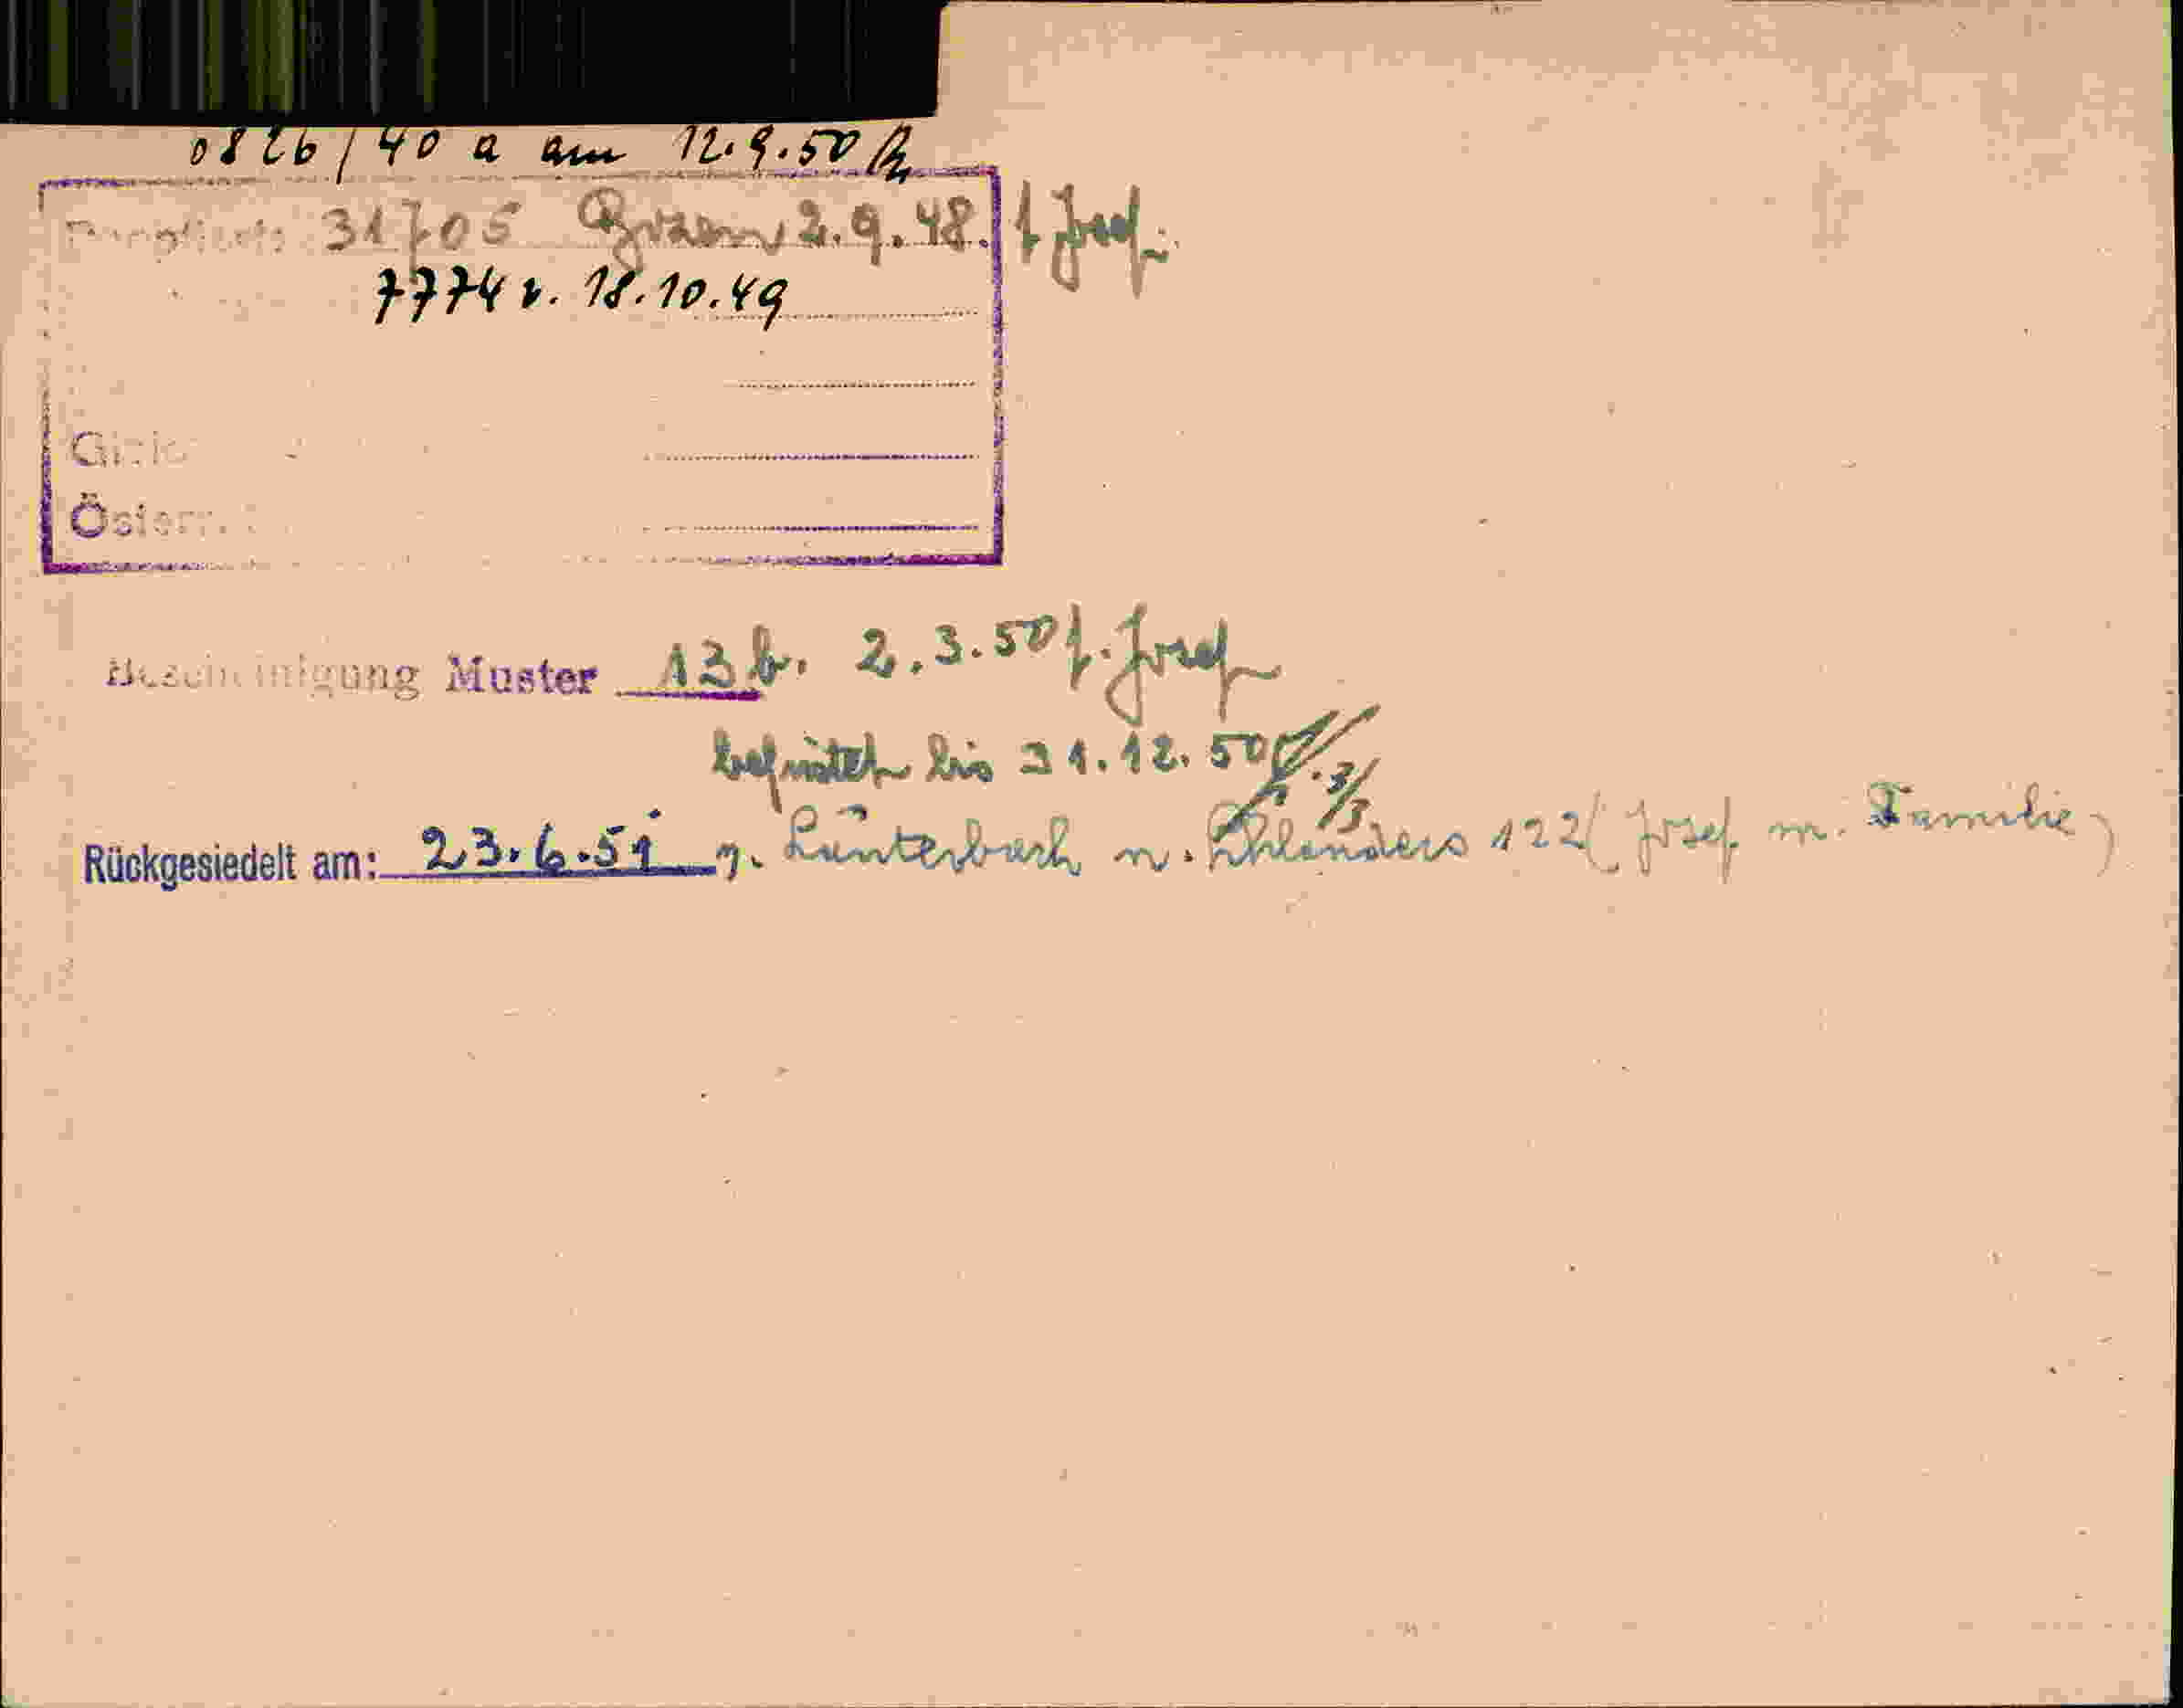 0826/40 a am 12.9.50
31705 Bozen 2.9.48. f. Josef.
7774 v. 18.10.49
Österr.
Bescheinigung Muster 13 b. 2.3.50 f. Josef
befristet bis 31.12.50
Rückgesiedelt am: 23.6.51 v. Lauterbach n. Schlanders 122 (Josef m. Familie)